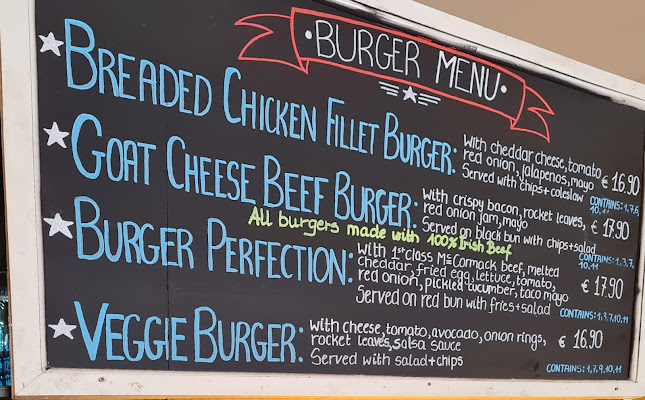 •BURGER MENU•
BREADED CHICKEN FILLET BURGER:
With cheddar cheese, tomato
red onion, jalapenos, mayo
Served with chips+coleslaw
€ 16.90
CONTAINS: 1,7,6,
10,11
GOAT CHEESE BEEF BURGER:
With crispy bacon, rocket leaves,
red onion jam, mayo
Served on black bun with chips+salad
€ 17.90
CONTAINS: 1,3,7,
10,11
All burgers made with 100% Irish Beef
BURGER PERFECTION:
With 1st class McCormack beef, melted
cheddar, fried egg, lettuce, tomato,
red onion, pickled cucumber, taco mayo
Served on red bun with fries+salad
€ 17.90
CONTAINS: 1,3,7,10,11
VEGGIE BURGER:
With cheese, tomato, avocado, onion rings,
rocket leaves, salsa sauce
Served with salad+chips
€ 16.90
CONTAINS: 1,7,9,10,11